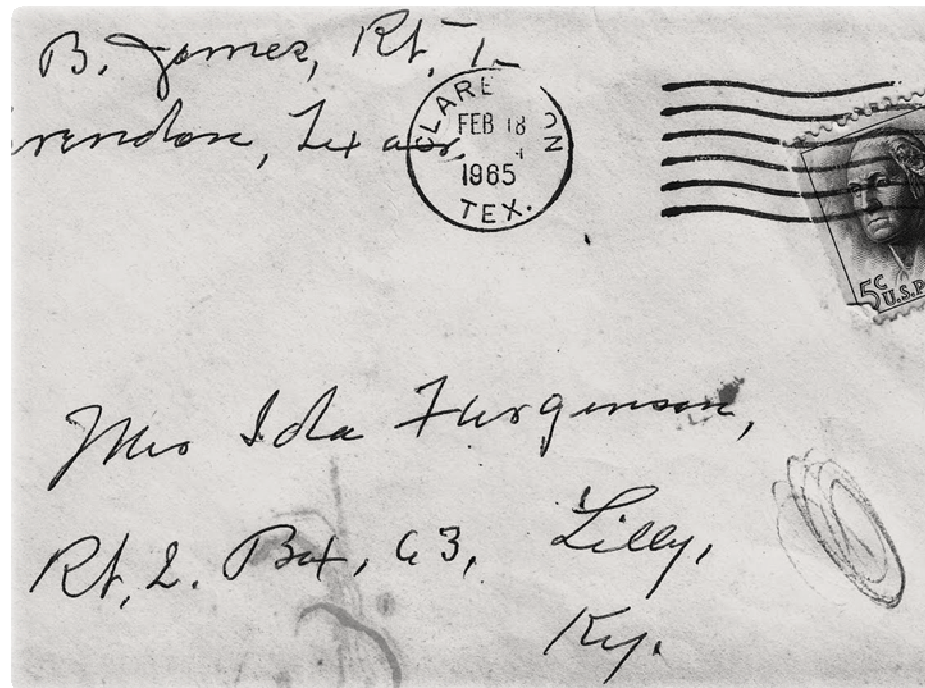 B. Jomes, Rt. 1.
rendon, Texas,
CLARE ON
FEB 18
1965
TEX.
5¢ U.S.P
Mrs Ida Furgeson,
Rt, 2. Box, 63, Lilly,
Ky.